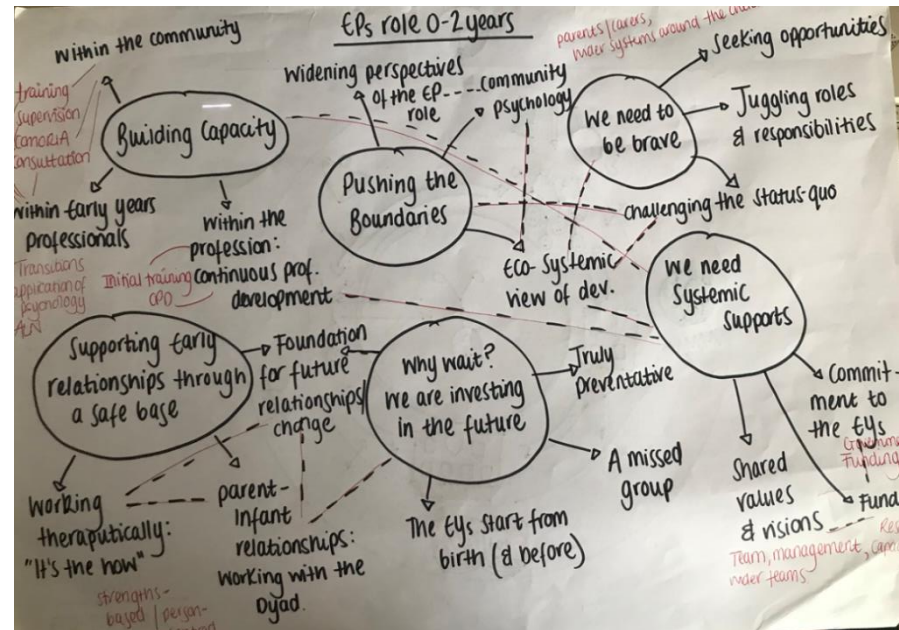 EPs role 0-2 years
Within the community
training
supervision
consultation
Building Capacity
within Early years
Professionals
Transitions
application of
psychology
ALN
Within the
profession:
continuous prof.
development
Initial training
CPD
Widening perspectives
of the EP
role
community
psychology
Pushing the
Boundaries
Eco-Systemic
view of dev.
parents/carers,
wider systems around the
We need to
be brave
Seeking opportunities
Juggling roles
& responsibilities
challenging the status-quo
We need
Systemic
Supports
Commit-
ment to
the EYs
Funding
Shared
values
& visions
Team, management,
wider teams
Supporting Early
relationships through
a safe base
Foundation
for future
relationships/
change
Working
theraputically:
"It's the how"
strengths-
based / person-
parent-
Infant
relationships:
Working with the
Dyad.
Why wait?
We are investing
in the future
Truly
preventative
A missed
group
The EYs start from
birth (& before)